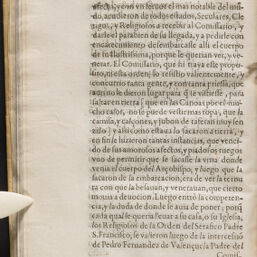 efecto, con vn feruor el mas notable del mũ-
do, acudieron de todos estados, Seculares, Cle
rigos, y Religiosos a recebir al Comissario, y
darle el parabien de su llegada, y a pedirle con
encarecimiento desembarcasse alli el cuerpo
de la Ilustrissima, porque le querian ver, y ve-
nerar. El Comissario, que ni traya esse propo-
sito, ni esta orden, lo resistio valientemente, y
concurrio tanta gente, y con tanta priessa, que
aun no le dieron lugar para q̃ se vistiesse, para
saltar en tierra (que en las Canoas por el mu-
cho calor, no se puede vestir mas ropa, que la
camisa, y calçones, y jubon de tafetan muy sen
zillo) y assi como estaua lo sacaron a tierra, y
en fin le hizieron tantas instancias, que venci-
do de sus amorosos afectos, y piadosos ruegos
vuo de permitir que se sacasse la vrna donde
venia el cuerpo del Arçobispo; y luego que la
sacaron de la embarcacion, era de ver la ternu
ra con que la besauan, y venerauan, que cierto
mouia a deuocion. Luego entrò la competen-
cia, y la duda de donde se auia de poner, porq̃
cada qual se queria lleuar a su casa, o su Iglesia,
los Religiosos de la Orden del Serafico Padre
S. Francisco, se valieron luego de la intercession
de Pedro Fernandez de Valençuela Padre del
Comis-